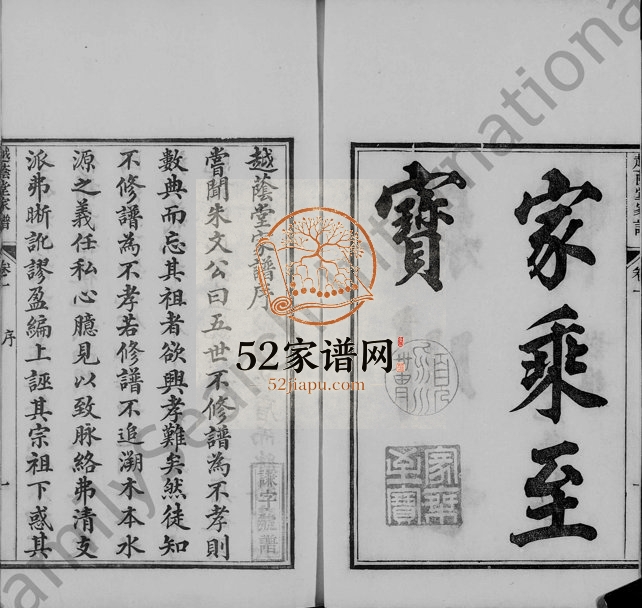 家乘至
寶
家乘
至寶
越蔭堂宗譜序
嘗聞朱文公曰五世不修譜為不孝則
數典而忘其祖者欲興孝難矣然徒知
不修譜為不孝若修譜不追溯木本水
源之義任私心臆見以致脉絡弗清支
派弗晰訛謬盈編上誣其宗祖下惑其
越蔭堂宗譜
卷一
序
一
52家谱网
52jiapu.com
FamilySearch International